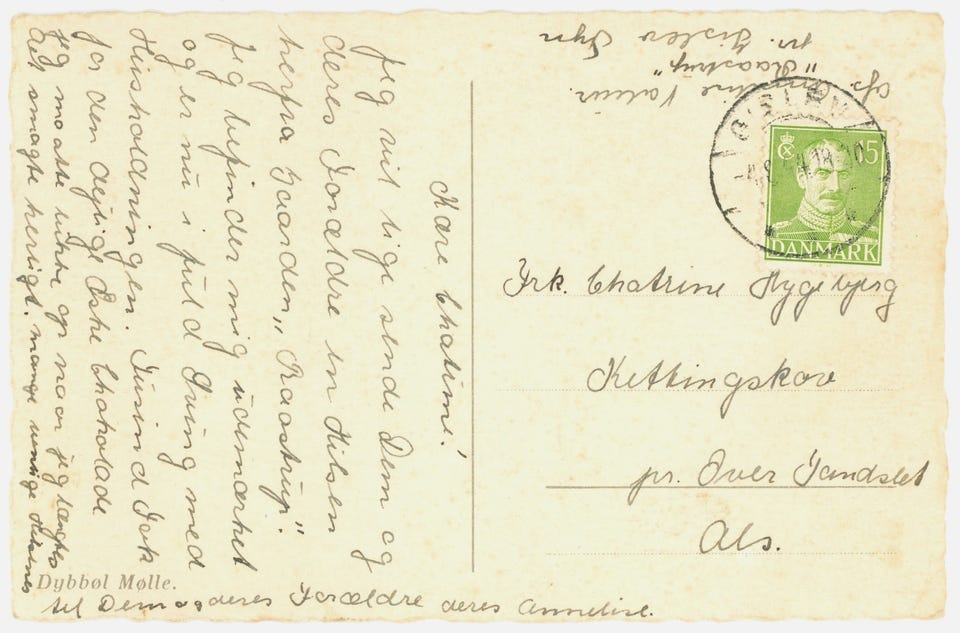 Kære Chatrine!
Jeg vil lige sende Dem og
deres Forældre en Hilsen
herfra Gaarden „Raastrup".
Jeg befinder mig udmærket
og er nu i fuld Sving med
Husholdningen. Tusind Tak
for den dejlige Æske Chokolade
jeg maatte lukke op naar jeg længtes
det smagte herligt. mange venlige Hilsner
til Dem og deres Forældre deres Annelise.
Dybbøl Mølle.
afs. Annelise
"Raastrup"
pr. Gislev Fyn
GISLEV
15
DANMARK
Frk. Chatrine Hygebjerg
Kettingskov
pr. Over Tandslet
Als.